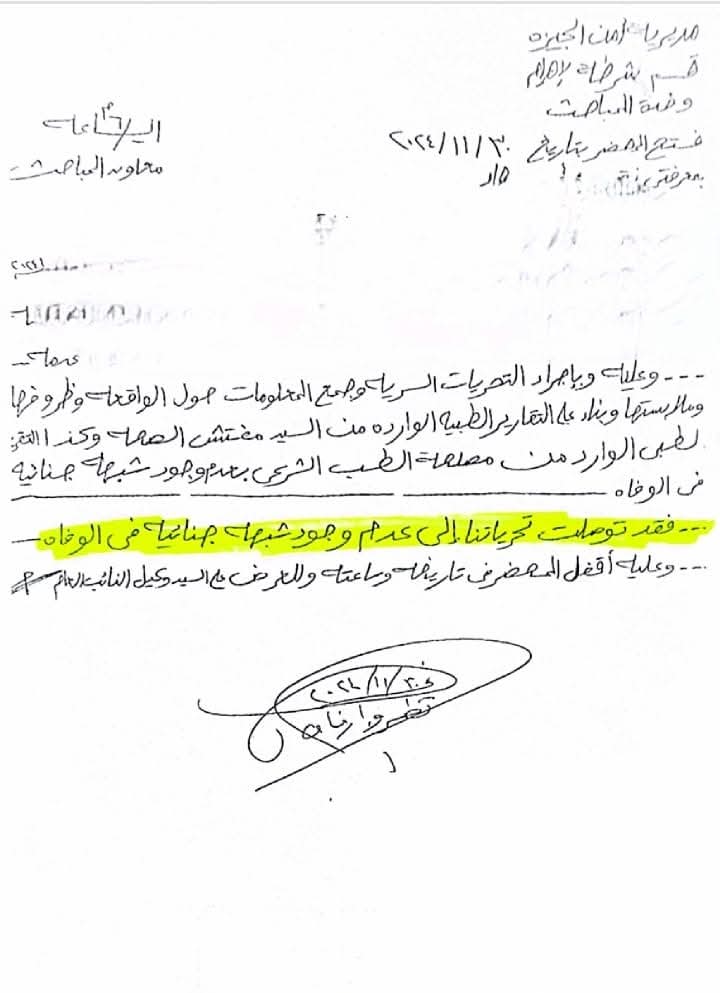 مديرية أمن الجيزه
قسم شرطة الاهرام
وحدة المباحث
فتح المحضر بتاريخ ٣٠/١١/٢٠٢٤ الساعة ٦ م
بمعرفتي معاون المباحث
--- وعليه وبإجراء التحريات السرية وجمع المعلومات حول الواقعه وظروفها
وملابستها وبناء على التقارير الطبيه الوارده من السيد مفتش الصحه وكذا التقر
لطبى الوارد من مصلحة الطب الشرعى بعدم وجود شبهه جنائيه
فى الوفاه
--- فقد توصلت تحرياتنا إلى عدم وجود شبهه جنائيه فى الوفاه
--- وعليه أقفل المحضر فى تاريخه وساعته وللعرض على السيد وكيل النائب العام
٣٠/١١/٢٠٢٤
نظر وارفق